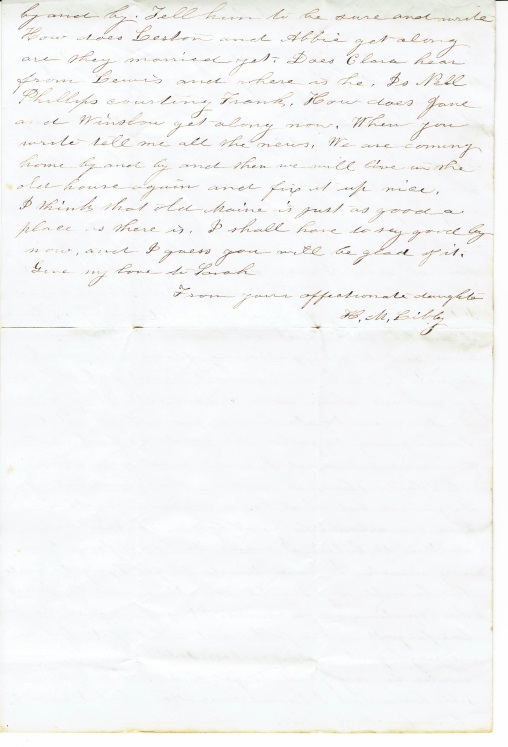 by and by. Tell him to be sure and write
How does Leston and Abbie get along
are they married yet. Does Clara hear
from Lewis and where is he. Is Nell
Phillips courting Frank. How does Jane
and Winslow get along now. When you
write tell me all the news. We are coming
home by and by and then we will live in the
old house again and fix it up nice.
I think that old Maine is just as good a
place as there is. I shall have to say good by
now, and I guess you will be glad of it.
Give my love to Sarah
From your affectionate daughter
H. M. Libby